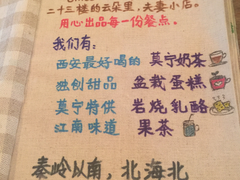 二十三楼的云朵里，夫妻小店。
用心出品每一份餐点。
我们有：
西安最好喝的 莫宁奶茶
独创甜品 盆栽蛋糕
莫宁特供 岩烧乳酪
江南味道 果茶
秦岭以南，北海北